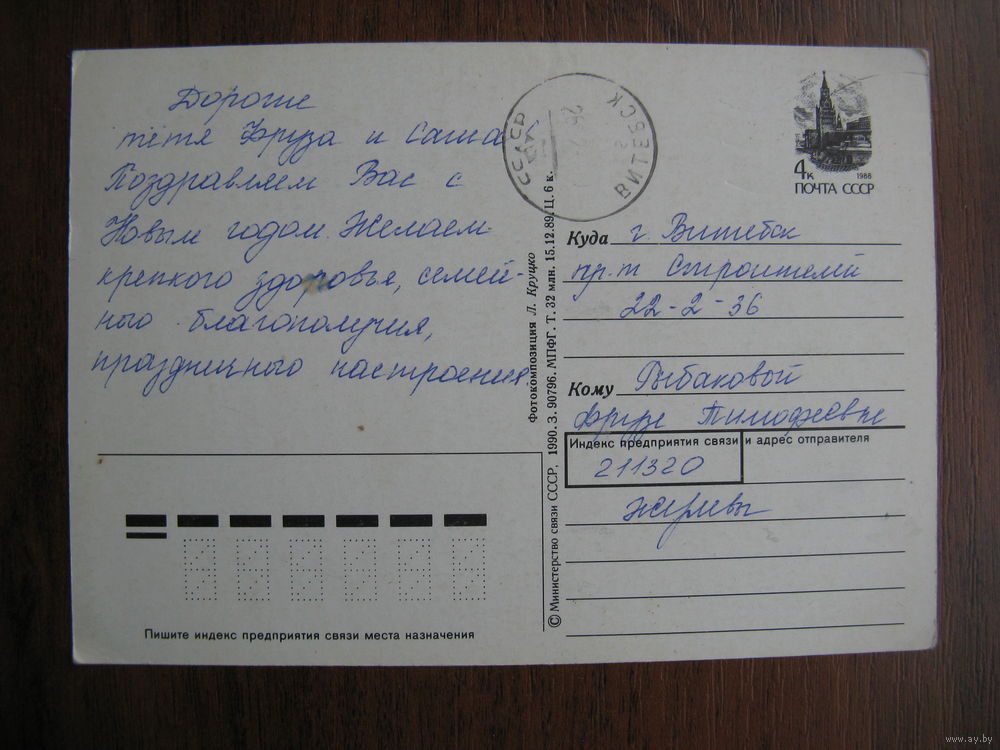 Дорогие
тётя Фруза и Саша
Поздравляем Вас с
Новым годом. Желаем
крепкого здоровья, семей-
ного благополучия,
праздничного настроения
СССР
ВИТЕБСК
4к
1988
ПОЧТА СССР
Куда г. Витебск
пр.т Строителей
22-2-36
Кому Рыбаковой
Фрузе Тимофеевне
Индекс предприятия связи и адрес отправителя
211320
© Министерство связи СССР, 1990. З. 90796. МПФГ. Т. 32 млн. 15.12.89. Ц. 6 к.
Фотокомпозиция Л. Круцко
Пишите индекс предприятия связи места назначения
www.ay.by